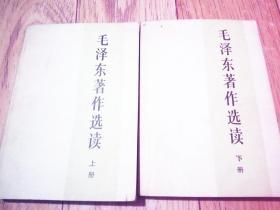 毛泽东著作选读
上册
毛泽东著作选读
下册